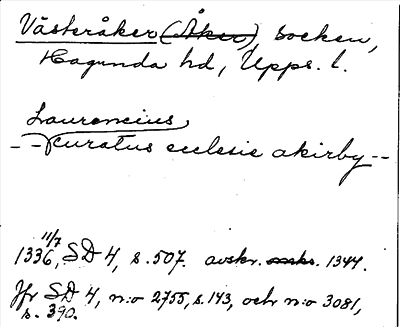 Västeråker (Åker) socken,
Hagunda hd, Upps. l.
Laurencius
-- curatus ecclesie akirby --
11/7
1336, SD 4, s. 507. avskr. 1344.
Jfr SD 4, n:o 2755, s. 143, och n:o 3081,
s. 390.